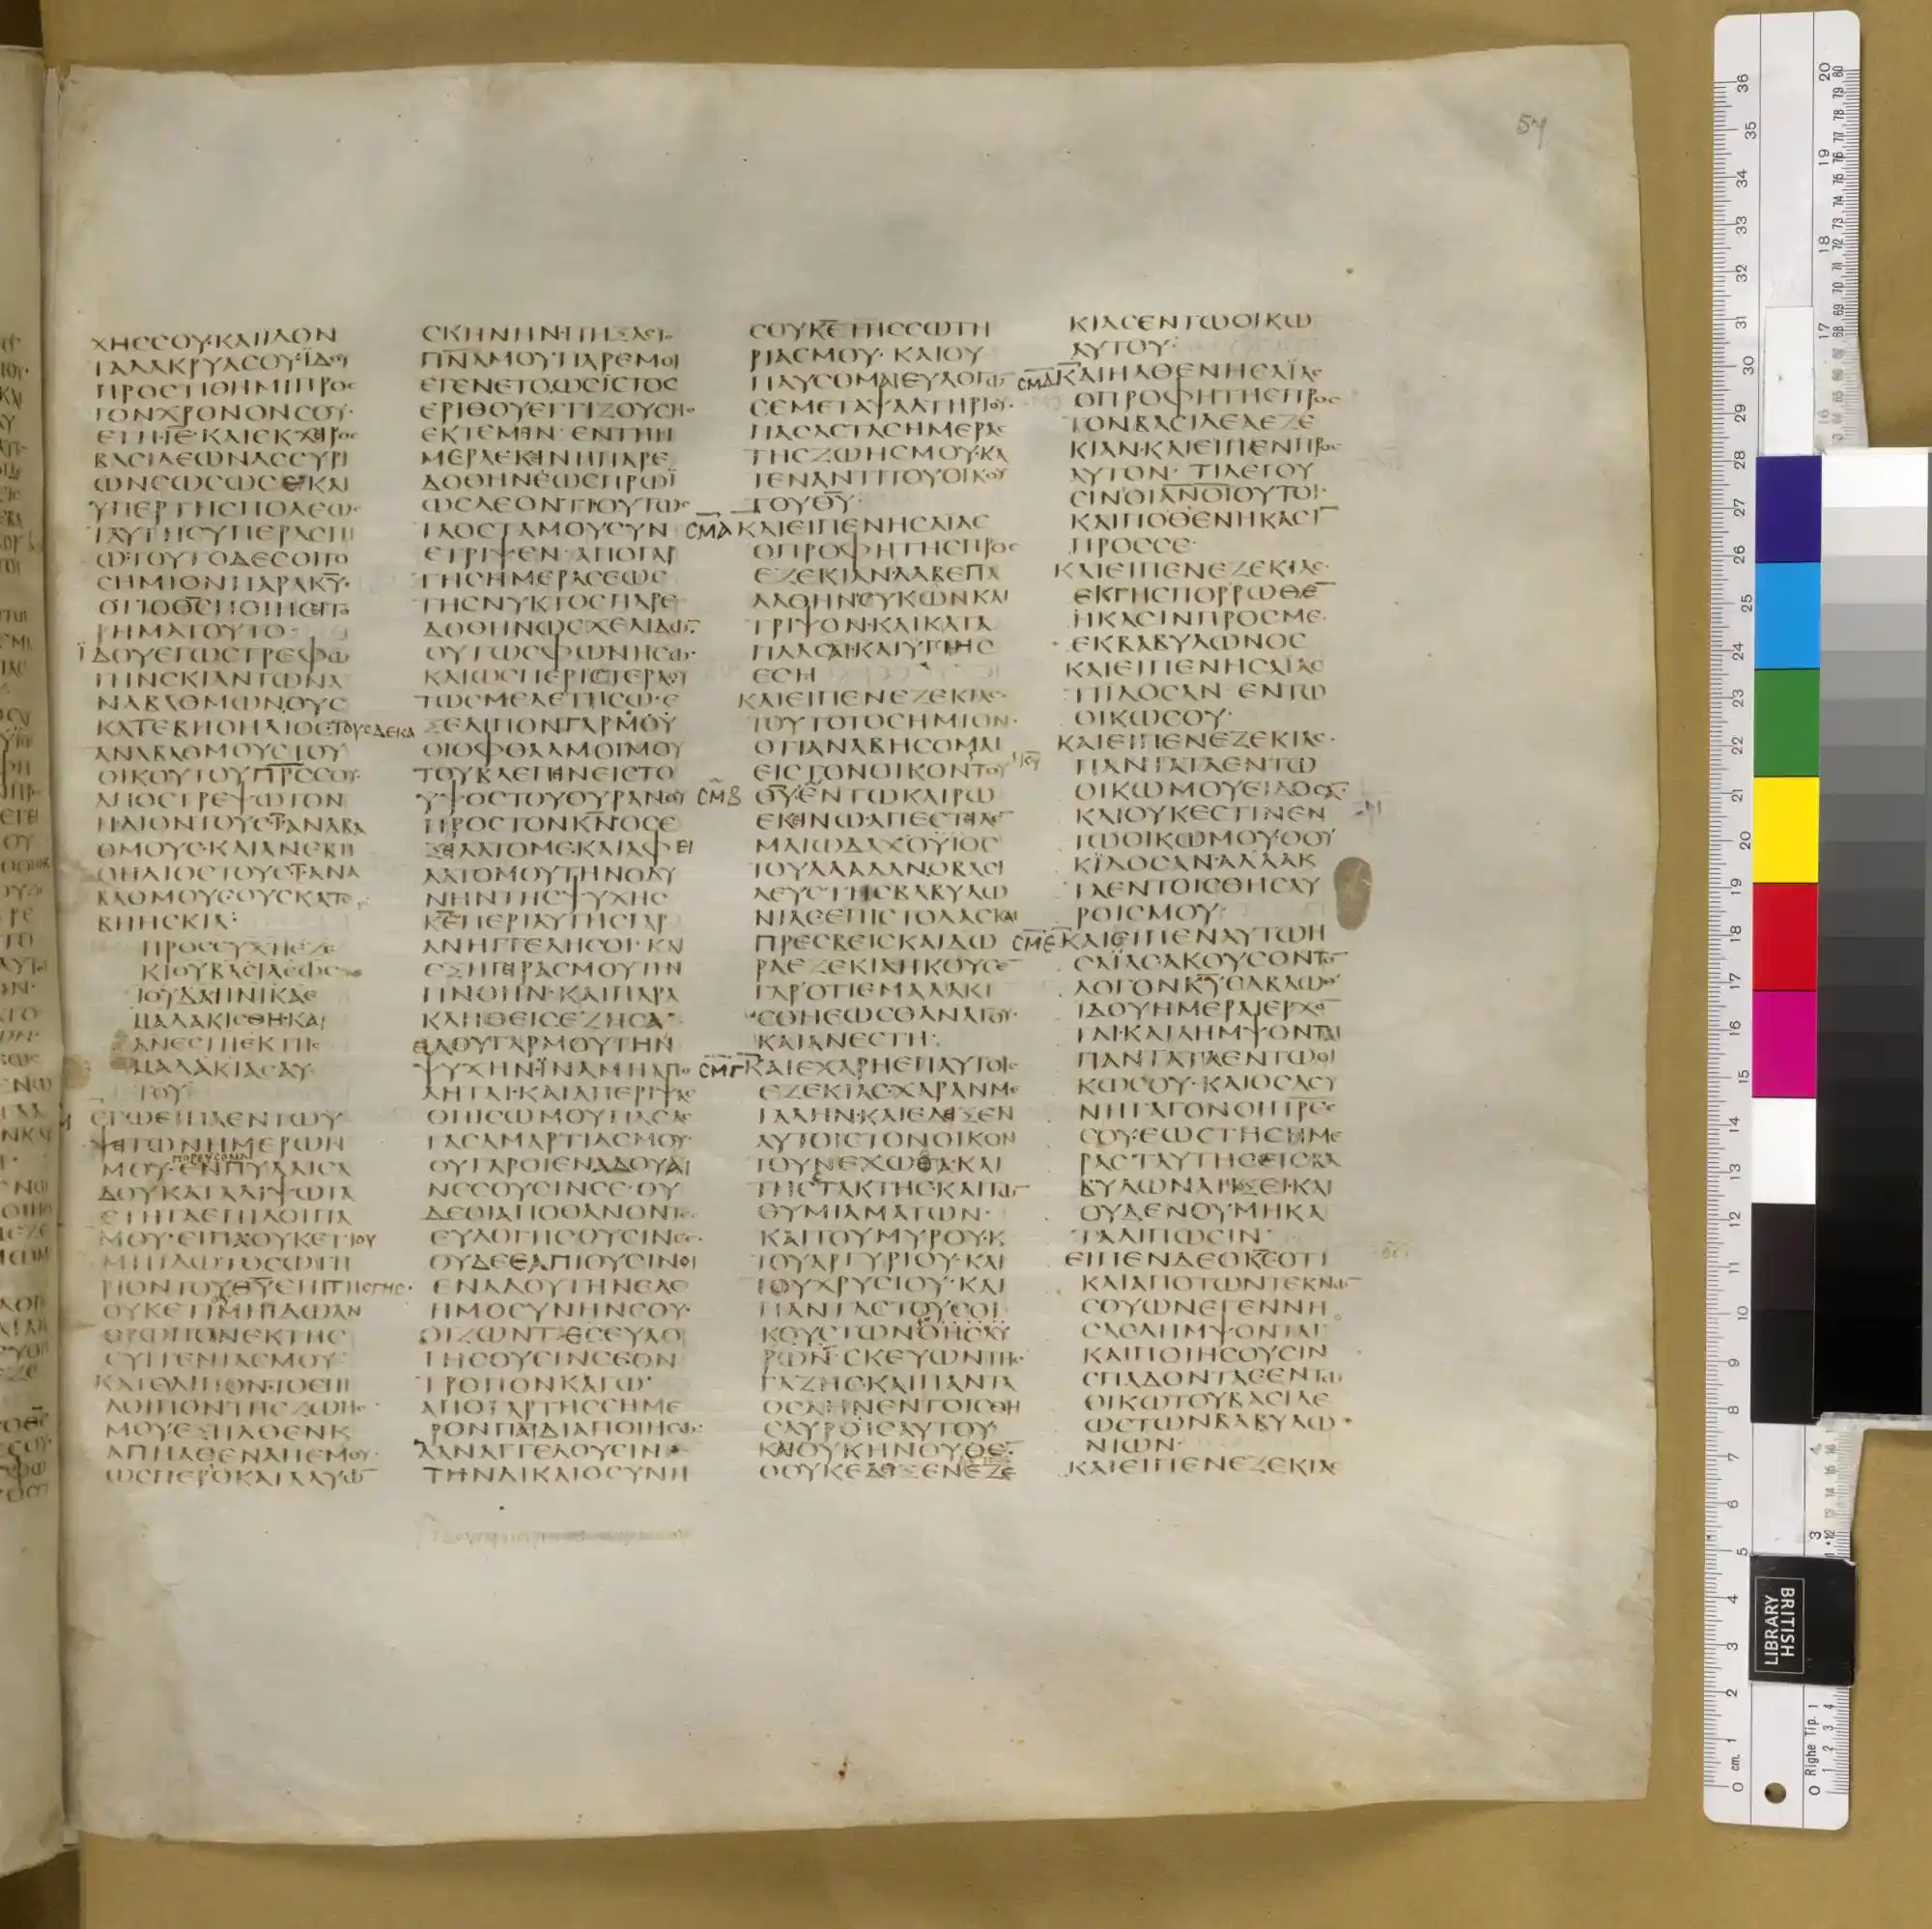 57
ΧΗCCΟΥ·ΚΑΙΙΔΟΝ
ΤΑΔΑΚΡΥΑCΟΥ·ΪΔΟΥ
ΠΡΟCΤΙΘΗΜΙΠΡΟC
ΤΟΝΧΡΟΝΟΝCΟΥ·
ΕΤΗΙΕ·ΚΑΙCΕΚΧΕΙΡΟC
ΒΑCΙΛΕΩΝΑCCΥΡΙ
ΥΠΕΡΤΗCΠΟΛΕΩC·
ΤΑΥΤΗCΥΠΕΡΑCΠΙ
Ω·ΤΟΥΤΟΔΕCΟΙΤΟ
CΗΜΙΟΝΠΑΡΑΚΥ·
ΟΤΙΟΘCΠΟΙΗCΕΙΤΟ
ΡΗΜΑΤΟΥΤΟ·
ΪΔΟΥΕΓΩCΤΡΕΦΩ
ΤΗΝCΚΙΑΝΤΩΝΑ
ΝΑΒΑΘΜΩΝΟΥC
ΚΑΤΕΒΗΟΗΛΙΟCΤΟΥCΔΕΚΑ
ΑΝΑΒΑΘΜΟΥCΤΟΥ
ΟΙΚΟΥΤΟΥΠΡCCΟΥ·
ΑΠΟCΤΡΕΨΩΤΟΝ
ΗΛΙΟΝΤΟΥCΙΑΝΑΒΑ
ΘΜΟΥC·ΚΑΙΑΝΕΒΗ
ΟΗΛΙΟCΤΟΥCΙΑΝΑ
ΒΑΘΜΟΥCΟΥCΚΑΤΕ
ΒΗΗCΚΙΑ:
ΠΡΟCΕΥΧΗΕΖΕ
ΚΙΟΥΒΑCΙΛΕΩC
ΙΟΥΔΑΗΝΙΚΑΕ
ΜΑΛΑΚΙCΘΗ·ΚΑΙ
ΑΝΕCΤΗΕΚΤΗC
ΜΑΛΑΚΙΑCΑΥ
ΤΟΥ
ΕΓΩΕΙΠΑΕΝΤΩΥ
ΨΕΙΤΩΝΗΜΕΡΩΝ
ΠΟΡΕΥCΟΜΑΙ
ΜΟΥ·ΕΝΠΥΛΑΙCΑ
ΔΟΥΚΑΤΑΛΙΨΩΤΑ
ΕΤΗΤΑΕΠΙΛΟΙΠΑ
ΜΟΥ·ΕΙΠΑΟΥΚΕΤΙΟΥ
ΜΗΙΔΩΤΟCΩΤΗ
ΡΙΟΝΤΟΥΘΥΕΠΙΤΗCΓΗC·
ΟΥΚΕΤΙΜΗΙΔΩΑΝ
ΘΡΩΠΟΝΕΚΤΗC
CΥΓΓΕΝΙΑCΜΟΥ
ΚΑΤΕΛΙΠΟΝΤΟΕΠΙ
ΛΟΙΠΟΝΤΗCΖΩΗC
ΜΟΥΕΞΗΛΘΕΝΚ
ΑΠΗΛΘΕΝΑΠΕΜΟΥ
ΩCΠΕΡΟΚΑΤΑΛΥΩ
CΚΗΝΗΝ·ΠΗΞΑC
ΠΝΑΜΟΥΠΑΡΕΜΟΙ
ΕΓΕΝΕΤΟΩCΪCΤΟC
ΕΡΙΘΟΥΕΓΓΙΖΟΥCΗC
ΕΚΤΕΜΙΝ·ΕΝΤΗΗ
ΜΕΡΑΕΚΙΝΗΠΑΡΕ
ΔΟΘΗΝΕΩCΠΡΩΪ
ΩCΛΕΟΝΤΙΟΥΤΩC
ΤΑΟCΤΑΜΟΥCΥΝ
ΕΤΡΙΨΕΝ·ΑΠΟΓΑΡ
ΤΗCΗΜΕΡΑCΕΩC
ΤΗCΝΥΚΤΟCΠΑΡΕ
ΔΟΘΗΝΩCΧΕΛΙΔΩ
ΟΥΤΩCΦΩΝΗCΩ·
ΚΑΙΩCΠΕΡΙCΤΕΡΑΟΥ
ΤΩCΜΕΛΕΤΗCΩ·Ε
ΞΕΛΙΠΟΝΓΑΡΜΟΥ
ΟΙΟΦΘΑΛΜΟΙΜΟΥ
ΤΟΥΒΛΕΠΙΝΕΙCΤΟ
ΥΨΟCΤΟΥΟΥΡΑΝΟΥ
ΠΡΟCΤΟΝΚΝΟCΕ
ΞΕΙΛΑΤΟΜΕ·ΚΑΙΑΦΕΙ
ΛΑΤΟΜΟΥΤΗΝΟΔΥ
ΝΗΝΤΗCΨΥΧΗC
ΚΕΠΕΡΙΑΥΤΗCΓΑΡ
ΑΝΗΓΓΕΛΗCΟΙ·ΚΑΙ
ΕΞΗΓΕΙΡΑCΜΟΥΤΗΝ
ΠΝΟΗΝ·ΚΑΙΠΑΡΑ
ΚΛΗΘΕΙCΕΖΗCΑ
ΕΙΛΟΥΓΑΡΜΟΥΤΗΝ
ΨΥΧΗΝ·ΪΝΑΜΗΑΠΟ
ΛΗΤΑΙ·ΚΑΙΑΠΕΡΙΨΑC
ΟΠΙCΩΜΟΥΠΑCΑC
ΤΑCΑΜΑΡΤΙΑCΜΟΥ·
ΟΥΓΑΡΟΙΕΝΑΔΟΥΑΙ
ΝΕCΟΥCΙΝCΕ·ΟΥ
ΔΕΟΙΑΠΟΘΑΝΟΝΤΕC
ΕΥΛΟΓΗCΟΥCΙΝCΕ·
ΟΥΔΕΕΛΠΙΟΥCΙΝΟΙ
ΕΝΑΔΟΥΤΗΝΕΛΕ
ΗΜΟCΥΝΗΝCΟΥ·
ΟΙΖΩΝΤΕCΕΥΛΟ
ΓΗCΟΥCΙΝCΕΟΝ
ΤΡΟΠΟΝΚΑΓΩ·
ΑΠΟΓΑΡΤΗCCΗΜΕ
ΡΟΝΠΑΙΔΙΑΠΟΙΗCΩ·
ΑΑΝΑΓΓΕΛΟΥCΙΝ
ΤΗΝΔΙΚΑΙΟCΥΝΗ
CΟΥΚΕΤΗCCΩΤΗ
ΡΙΑCΜΟΥ· ΚΑΙΟΥ
ΠΑΥCΟΜΑΙΕΥΛΟΓΩ
CΕΜΕΤΑΨΑΛΤΗΡΙΟΥ·
ΠΑCΑCΤΑCΗΜΕΡΑC
ΤΗCΖΩΗCΜΟΥ·ΚΑ
ΤΕΝΑΝΤΙΤΟΥΟΙΚΟΥ
ΤΟΥΘΥ·
CΜΑ ΚΑΙΕΙΠΕΝΗCΑΙΑC
ΟΠΡΟΦΗΤΗCΠΡΟC
ΕΖΕΚΙΑΝ·ΛΑΒΕΠΑ
ΛΑΘΗΝCΥΚΩΝΚΑΙ
ΤΡΙΨΟΝ·ΚΑΙΚΑΤΑ
ΠΛΑCΑΙ·ΚΑΙΥΓΙΗC
ΕCΗ
ΚΑΙΕΙΠΕΝΕΖΕΚΙΑC·
ΤΟΥΤΟΤΟCΗΜΙΟΝ·
ΟΤΙΑΝΑΒΗCΟΜΑΙ
ΕΙCΤΟΝΟΙΚΟΝΤΟΥ
CΜΒ ΘΥ·ΕΝΤΩΚΑΙΡΩ
ΕΚΕΙΝΩ·ΑΠΕCΤΙΛΕ
ΜΑΙΩΔΑΧΟΥΪΟC
ΤΟΥΛΑΑΔΑΝΟΒΑCΙ
ΛΕΥCΤΗCΒΑΒΥΛΩ
ΝΙΑCΕΠΙCΤΟΛΑCΚΑΙ
ΠΡΕCΒΕΙCΚΑΙΔΩ
ΡΑΕΖΕΚΙΑΗΚΟΥCΕ
ΓΑΡΟΤΙΕΜΑΛΑΚΙ
CΘΗΕΩCΘΑΝΑΤΟΥ·
ΚΑΙΑΝΕCΤΗ·
CΜΓ ΚΑΙΕΧΑΡΗΕΠΑΥΤΟΙC
ΕΖΕΚΙΑCΧΑΡΑΝΜΕ
ΓΑΛΗΝ·ΚΑΙΕΔΕΙΞΕΝ
ΑΥΤΟΙCΤΟΝΟΙΚΟΝ
ΤΟΥΝΕΧΩΘΑ·ΚΑΙ
ΤΗCΤΑΚΤΗC·ΚΑΙΤΩ
ΘΥΜΙΑΜΑΤΩΝ·
ΚΑΙΤΟΥΜΥΡΟΥ·Κ
ΤΟΥΑΡΓΥΡΙΟΥ·ΚΑΙ
ΤΟΥΧΡΥCΙΟΥ·ΚΑΙ
ΠΑΝΤΑCΤΟΥCΟΙ
ΚΟΥCΤΩΝΘΗCΑΥ
ΡΩΝ·CΚΕΥΩΝΤΗC
ΓΑΖΗC·ΚΑΙΠΑΝΤΑ
ΟCΑΗΝΕΝΤΟΙCΘΗ
CΑΥΡΟΙCΑΥΤΟΥ
ΚΑΙΟΥΚΗΝΟΥΘΕ
ΟΟΥΚΕΔΕΙΞΕΝΕΖΕ
ΚΙΑCΕΝΤΩΟΙΚΩ
ΑΥΤΟΥ·
CΜΔ ΚΑΙΗΛΘΕΝΗCΑΪΑC
ΟΠΡΟΦΗΤΗCΠΡΟC
ΤΟΝΒΑCΙΛΕΑΕΖΕ
ΚΙΑΝ·ΚΑΙΕΙΠΕΝΠΡΟC
ΑΥΤΟΝ· ΤΙΛΕΓΟΥ
CΙΝΟΙΑΝΟΙΟΥΤΟΙ·
ΚΑΙΠΟΘΕΝΗΚΑCΙ
ΠΡΟCCΕ·
ΚΑΙΕΙΠΕΝΕΖΕΚΙΑC·
ΕΚΓΗCΠΟΡΡΩΘΕ
ΗΚΑCΙΝΠΡΟCΜΕ·
ΕΚΒΑΒΥΛΩΝΟC
ΚΑΙΕΙΠΕΝΗCΑΪΑC
ΤΙΙΔΟCΑΝ·ΕΝΤΩ
ΟΙΚΩCΟΥ·
ΚΑΙΕΙΠΕΝΕΖΕΚΙΑC·
ΠΑΝΤΑΤΑΕΝΤΩ
ΟΙΚΩΜΟΥΕΙΔΟCΑ
ΚΑΙΟΥΚΕCΤΙΝΕΝ
ΤΩΟΙΚΩΜΟΥ·ΟΟΥ
ΚΪΔΟCΑΝ·ΑΛΛΑΚ
ΤΑΕΝΤΟΙCΘΗCΑΥ
ΡΟΙCΜΟΥ·
CΜΕ ΚΑΙΕΙΠΕΝΑΥΤΩΗ
CΑΪΑCΑΚΟΥCΟΝΤΟ
ΛΟΓΟΝΚΥCΑΒΑΩΘ·
ΙΔΟΥΗΜΕΡΑΙΕΡΧΟ
ΤΑΙ·ΚΑΙΛΗΜΨΟΝΤΑΙ
ΠΑΝΤΑΤΑΕΝΤΩΟΙ
ΚΩCΟΥ·ΚΑΙΟCΑCΥ
ΝΗΓΑΓΟΝΟΙΠΡΕC
CΟΥ·ΕΩCΤΗCΗΜΕ
ΡΑCΤΑΥΤΗCΕΙCΒΑ
ΒΥΛΩΝΑΗΞΕΙ·ΚΑΙ
ΟΥΔΕΝΟΥΜΗΚΑ
ΤΑΛΙΠΩCΙΝ·
ΕΙΠΕΝΔΕΟΚCΟΤΙ
ΚΑΙΑΠΟΤΩΝΤΕΚΝΩ
CΟΥΩΝΕΓΕΝΝΗ
CΑCΛΗΜΨΟΝΤΑΙ
ΚΑΙΠΟΙΗCΟΥCΙΝ
CΠΑΔΟΝΤΑCΕΝΤΩ
ΟΙΚΩΤΟΥΒΑCΙΛΕ
ΩCΤΩΝΒΑΒΥΛΩ
ΝΙΩΝ·
ΚΑΙΕΙΠΕΝΕΖΕΚΙΑC
BRITISH
LIBRARY